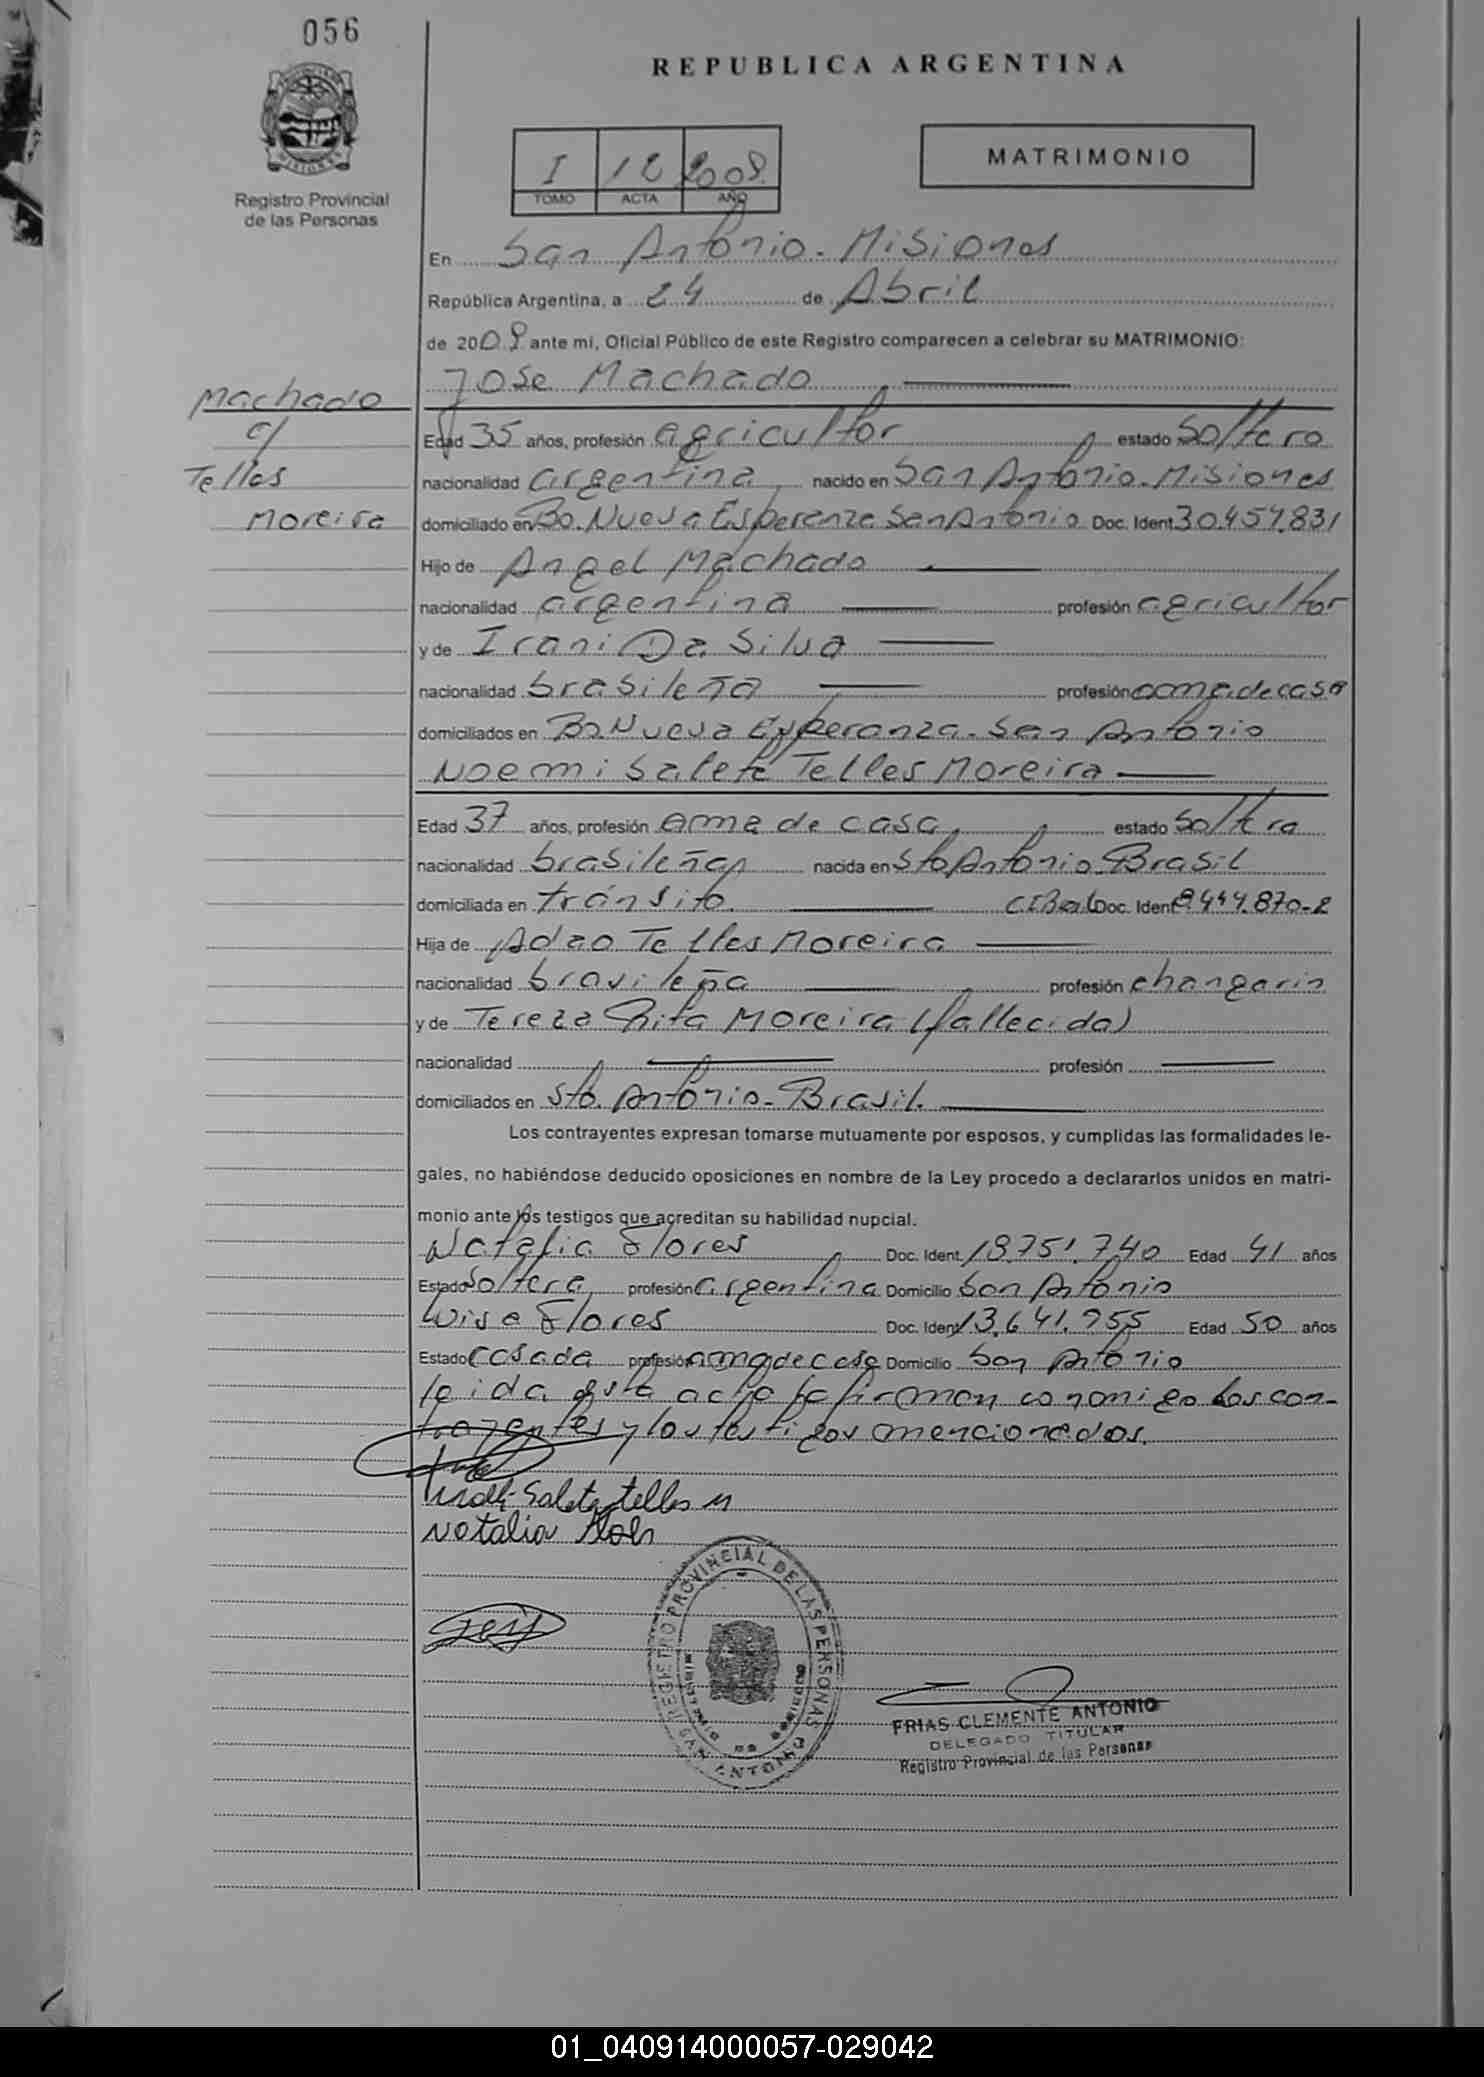 056
REPUBLICA ARGENTINA
Registro Provincial
de las Personas
I 12
TOMO ACTA AÑO
MATRIMONIO
En San Antonio - Misiones
República Argentina, a 24 de Abril
de 200 ante mi, Oficial Público de este Registro comparecen a celebrar su MATRIMONIO:
Jose Machado
Machado
c/
Telles
Moreira
Edad 35 años, profesión agricultor estado Soltero
nacionalidad argentina nacido en San Antonio - Misiones
domiciliado en Bo. Nueva Esperanza San Antonio Doc. Ident 30.457.831
Hijo de Angel Machado
nacionalidad argentina profesión agricultor
y de Irani Da Silva
nacionalidad brasileña profesión ama de casa
domiciliados en Bo. Nueva Esperanza - San Antonio
Noemi Salete Telles Moreira
Edad 37 años, profesión ama de casa estado Soltera
nacionalidad brasileña nacida en Sto Antonio - Brasil
domiciliada en tránsito Doc. Ident 9.444.870-2
Hija de Adao Telles Moreira
nacionalidad brasileña profesión changarin
y de Tereza Rita Moreira (fallecida)
nacionalidad profesión
domiciliados en Sto. Antonio - Brasil.
Los contrayentes expresan tomarse mutuamente por esposos, y cumplidas las formalidades le-
gales, no habiéndose deducido oposiciones en nombre de la Ley procedo a declararlos unidos en matri-
monio ante los testigos que acreditan su habilidad nupcial.
Natalia Flores Doc. Ident. 18.751.740 Edad 41 años
Estado Soltera profesión argentina Domicilio San Antonio
Luisa Flores Doc. Ident 13.641.955 Edad 50 años
Estado casada profesión ama de casa Domicilio San Antonio
leida esta acta la firman conmigo los con-
trayentes y los testigos mencionados.
Salete telles M
Natalia
REGISTRO PROVINCIAL DE LAS PERSONAS
SAN ANTONIO
FRIAS CLEMENTE ANTONIO
DELEGADO TITULAR
Registro Provincial de las Personas
01_040914000057-029042